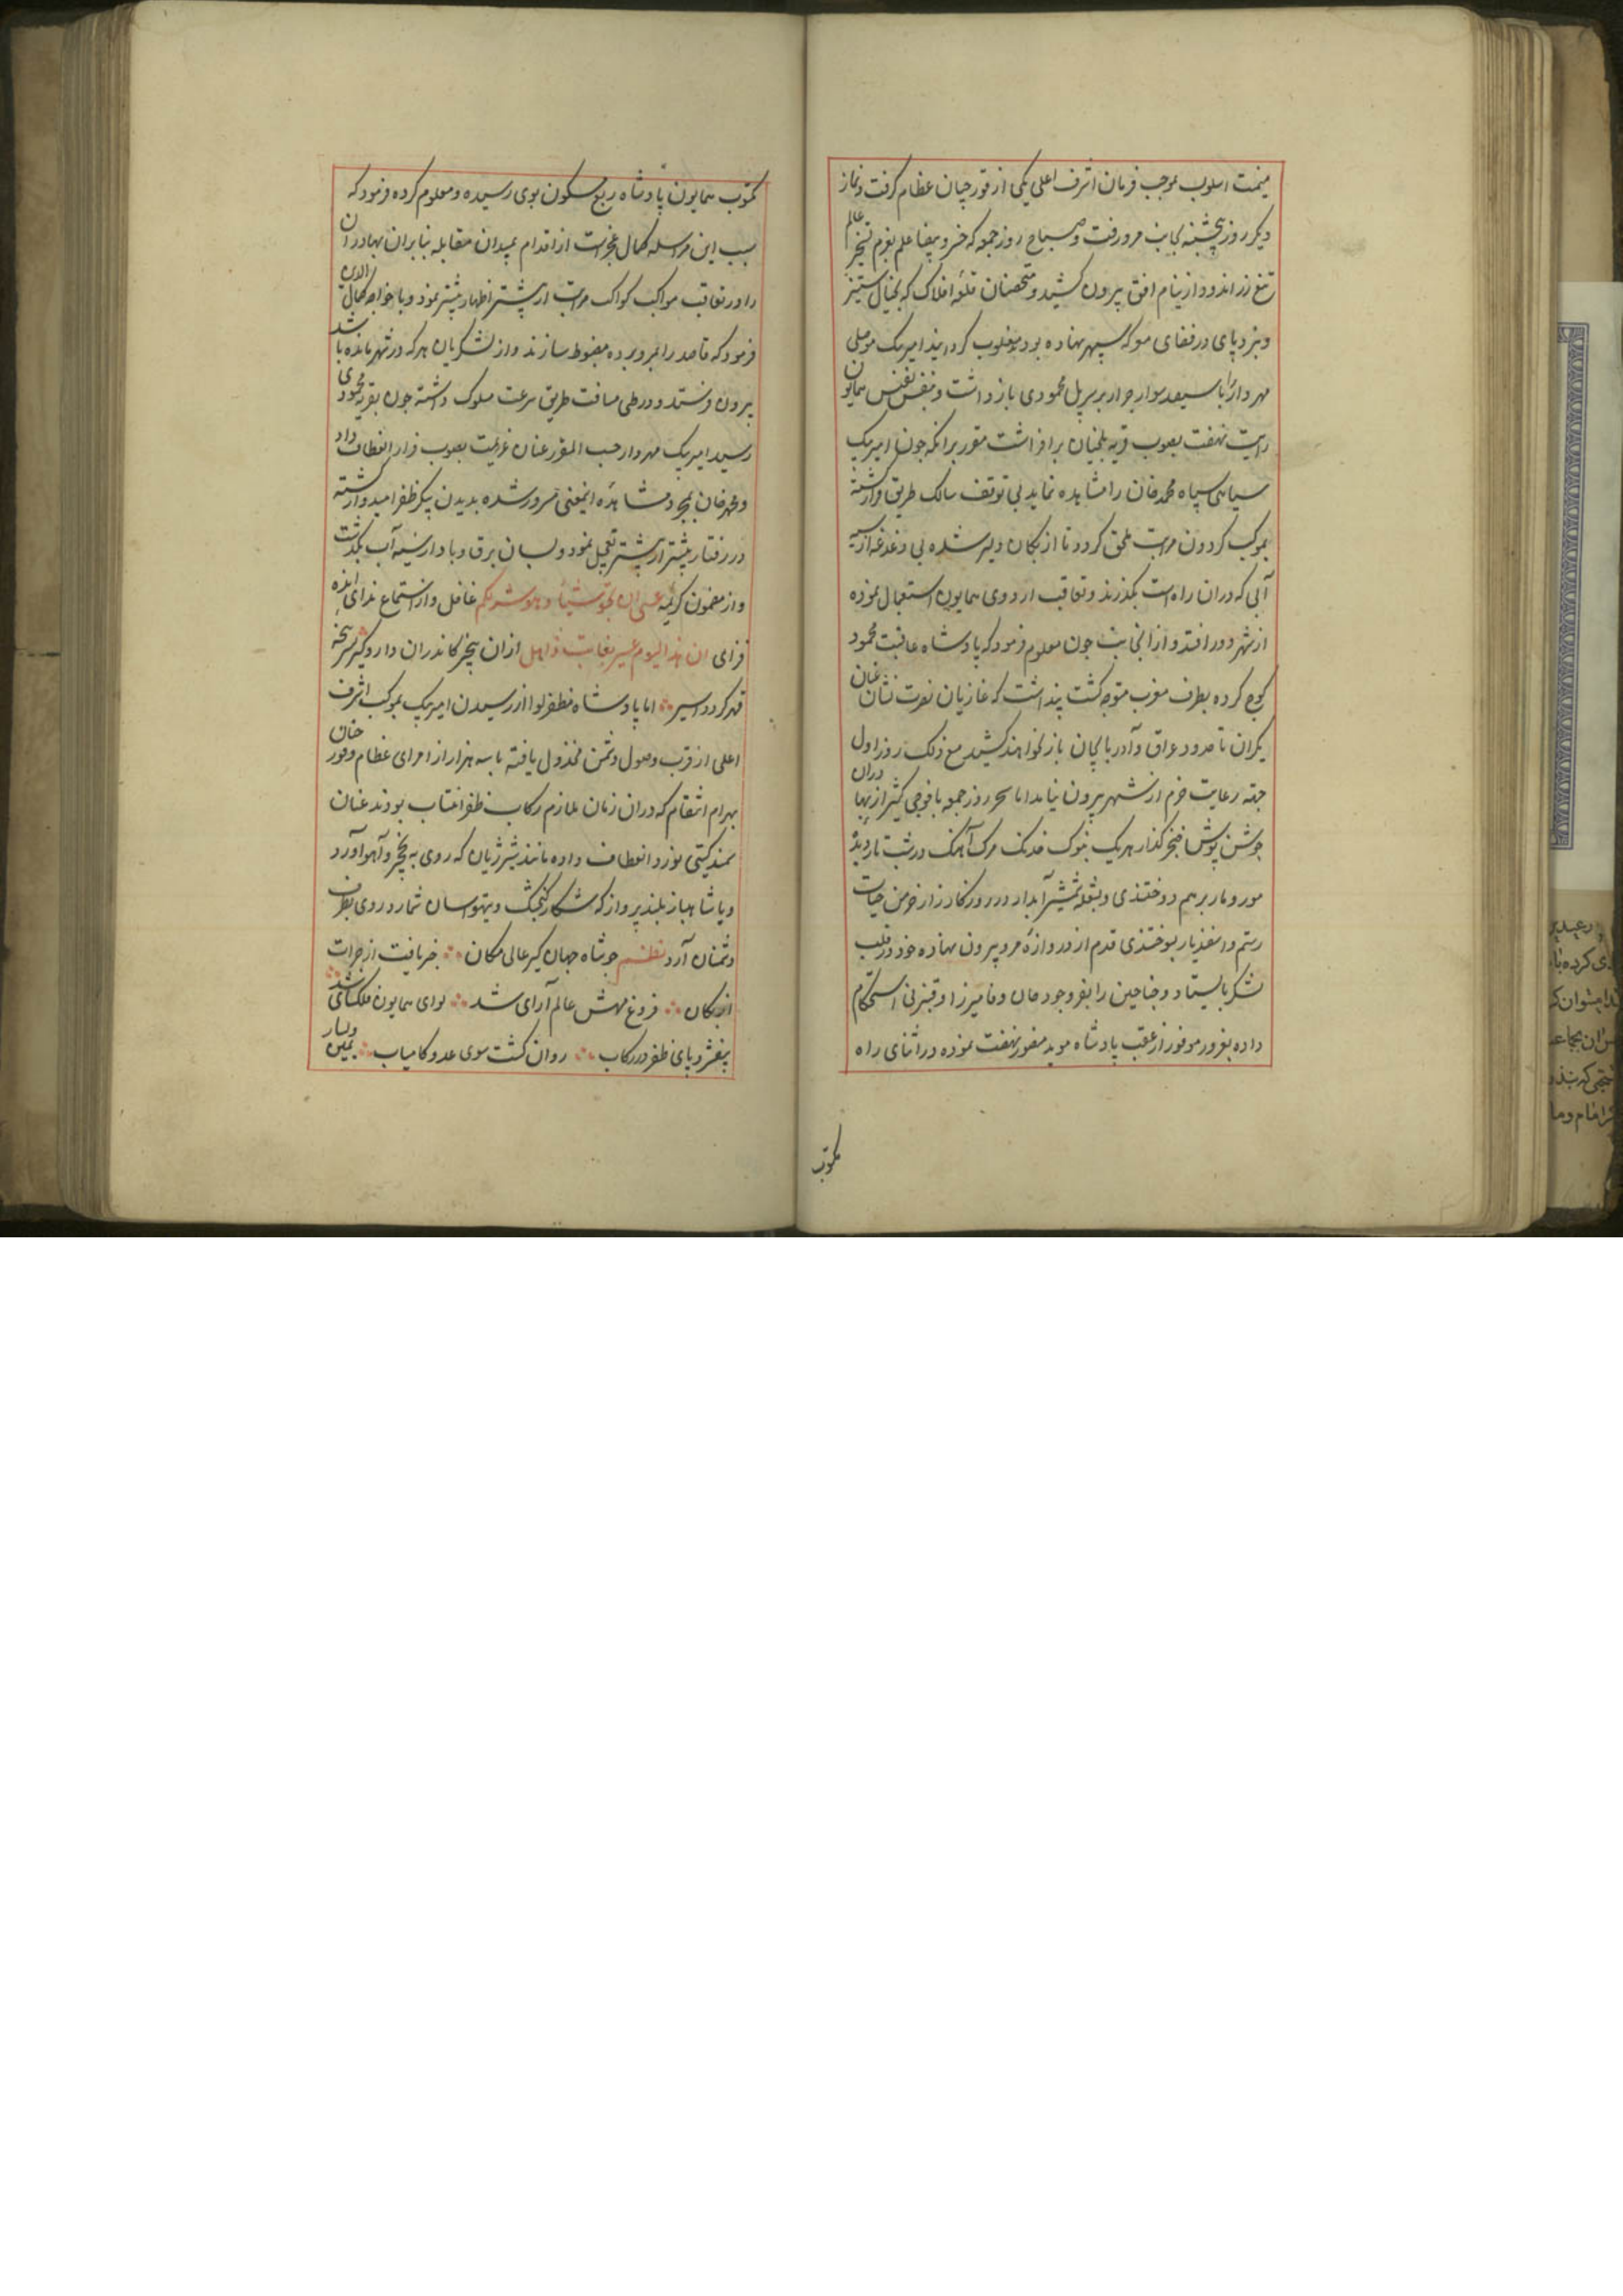 میمنت اسلوب بموجب فرمان اشرف اعلی یکی از قورچیان عظام گرفت و نماز
دیکر روز پنجشنبه بجانب مرو رفت و صباح روز جمعه که خسرو بیضا علم بعزم تسخیر عالم
تیغ زراندود از نیام افق بیرون کشید و متحصنان قلعه افلاک که بخیال ستیز
و نبرد پای در فضای معرکه سپهر نهاده بودند مغلوب کردانید امیر بیک موصلی
مهردار را با سیصد سوار جرار بر سر پل محمودی باز داشت و بنفس نفیس همایون
رایت نهضت بصوب قریه طلختان برافراشت مقرر برانکه چون امیر بیک
سیاهی سپاه محمد خان را مشاهده نماید بی توقف سالک طریق فرار کشته
بموکب کردون مرتبت ملحق کردد تا ازبکان دلیر شده بی دغدغه از سر
آبی که دران راه است بگذرند و تعاقب اردوی همایون استعجال نموده
از شهر دور افتد و از آنجانب چون معلوم فرمود که پادشاه عاقبت محمود
کوچ کرده بطرف مغرب متوجه کشت پنداشت که غازیان نصرت نشان عنان
یکران تا حدود عراق و آذربایجان باز نخواهند کشید مع ذلک روز اول
جهة رعایت حزم از شهر بیرون نیامد اما سحر روز جمعه با فوجی کثیر از بهادران
جوشن پوش خنجر کذار هر یک بنوک خدنک مرک آهنک در شب تار دیدهٔ
مور و مار برهم دوختندی و بشعله شمشیر آبدار در روز کارزار خرمن حیات
رستم و اسفندیار بسوختندی قدم از دروازهٔ مرو بیرون نهاده خود در قلب
لشکر بایستاد و جناحین را بفر وجود جان وفا میرزا و قنبر بی استحکام
داده بغرور موفور از عقب پادشاه موید منصور نهضت نموده در اثنای راه
مکتوب
مکتوب همایون پادشاه ربع مسکون بوی رسیده و معلوم کرده فرمود که
سبب این مراسله کمال عجزست از اقدام بمیدان مقابله بنا بران بهادران
را در تعاقب مواکب کواکب مراتب از پیشتر اظهار بیشتر نمود و با خواجه کمال الدین
فرمود که قاصد را بمرو برده مضبوط سازند و از لشکریان هر که در شهر مانده باشد
بیرون فرستد و در طی مسافت طریق سرعت مسلوک داشته چون بقریه محمودی
رسید امیر بیک مهردار حسب المقرر عنان عزیمت بصوب فرار انعطاف داد
و محمد خان بمجرد مشاهده اینمعنی مسرور شده بدیدن پیکر ظفر امیدوار کشته
در رفتار بیشتر از پیشتر تعجیل نمود و بسان برق و باد از سر آب بگذشت
و از مضمون کریمه عسی ان تحبوا شیئا و هو شر لکم غافل و از استماع ندای اندوه
فزای ان هذا الیوم عسیر بغایت ذاهل ازان بیخبر کاندران دار و کیر سرپنجه
قهر کردد اسیر اما پادشاه مظفر لوا از رسیدن امیر بیک بموکب اشرف
اعلی از قرب وصول دشمن مخذول یافته با سه هزار از امرای عظام و قورچیان
بهرام انتقام که دران زمان ملازم رکاب ظفر انتساب بودند عنان
سمند کیتی نورد انعطاف داده مانند شیر ژیان که روی به نخجیر و آهو آورد
و یا شاهباز بلند پرواز که شکار کنجشک و تیهو آسان شمارد روی بطرف
دشمنان آرد نظم چو شاه جهان کیر عالی مکان خبر یافت از جرات
ازبکان فروغ مهش عالم آرای شد لوای همایون فلکسای شد
بیفشرد پای ظفر در رکاب روان کشت سوی عدو کامیاب یمین و یسار